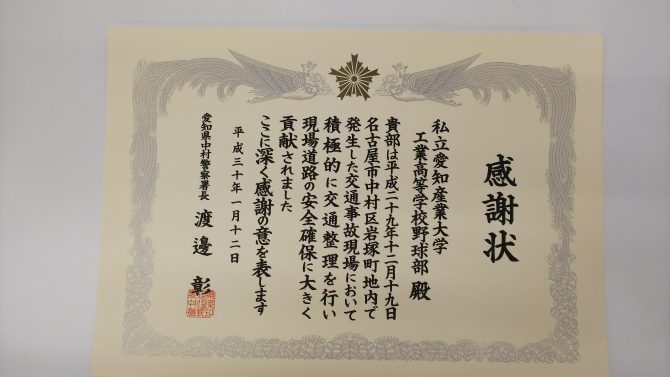 感謝状
私立愛知産業大学
工業高等学校野球部 殿
貴部は平成二十九年十二月十九日
名古屋市中村区岩塚町地内で
発生した交通事故現場において
積極的に交通整理を行い
現場道路の安全確保に大きく
貢献されました
ここに深く感謝の意を表します
平成三十年一月十二日
愛知県中村警察署長 渡邊 彰